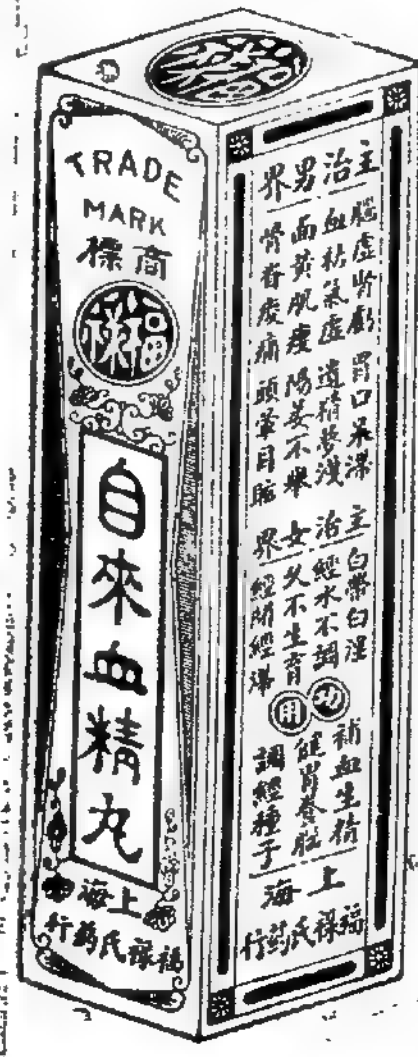 福祿
TRADE
MARK
商標
福祿
自來血精丸
上海
福祿氏葯行
主治男界
腦虛腎虧 胃口呆滯
血枯氣虛 遺精夢洩
面黃肌瘦 陽萎不舉
骨脊痠痛 頭暈目眩
主治女界
白帶白淫
經水不調
久不生育
經閉經
功用
補血生精
健胃養腦
調經種子
上海
福祿氏葯行